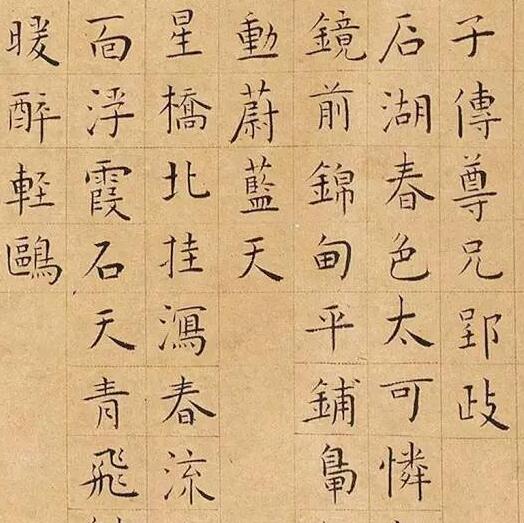 子傳尊兄郢政
后湖春色太可憐
鏡前錦甸平鋪
動蔚藍天
星橋北挂瀉春流
靣浮霞石天青飛
暖醉輕鷗